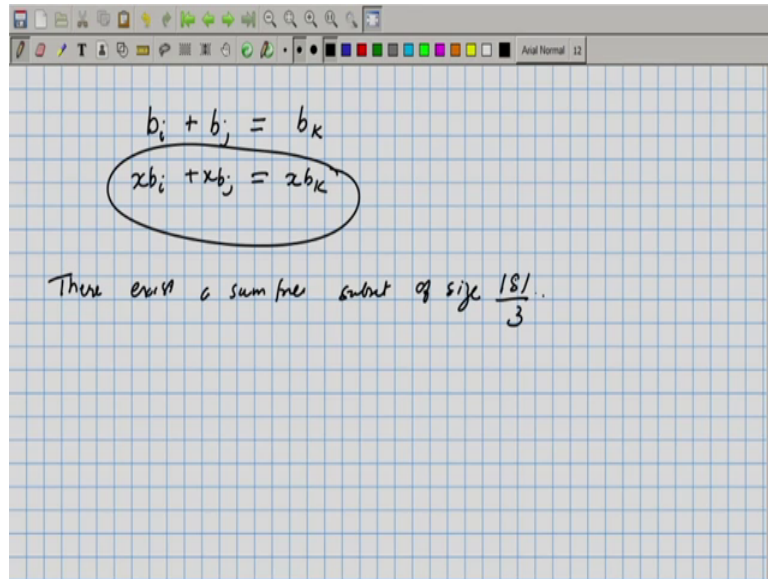 T
Arial Normal 12
bᵢ + bⱼ = bₖ
xbᵢ + xbⱼ = xbₖ
There exist a sum free subset of size |S|/3.